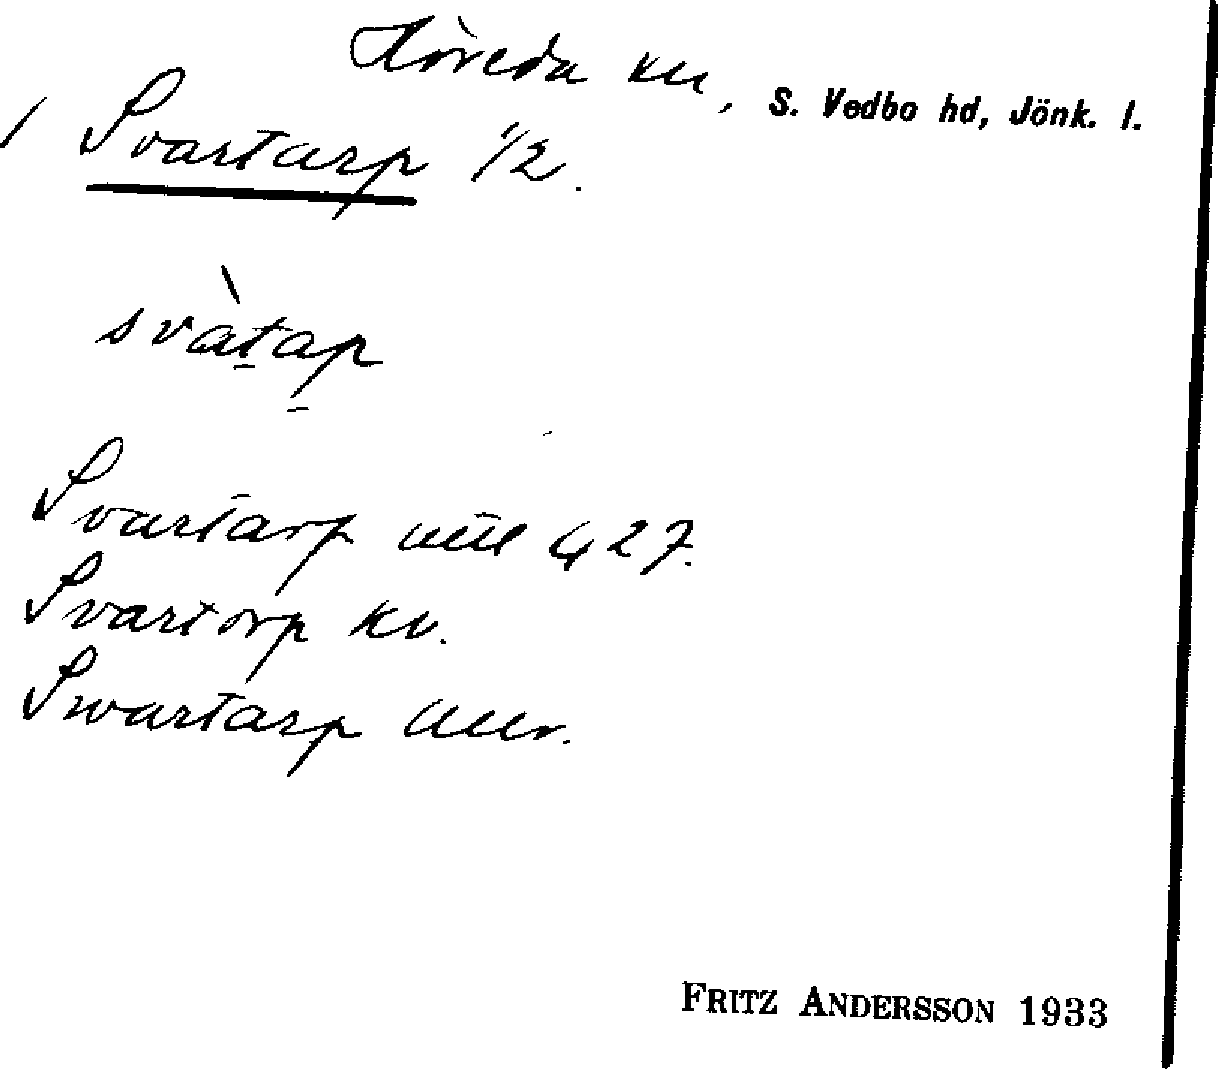 Höreda sn, S. Vedbo hd, Jönk. l.
Svartarp 1/2.
svàtap
Svartarp 427.
Svartorp kv.
Swartarp
FRITZ ANDERSSON 1933